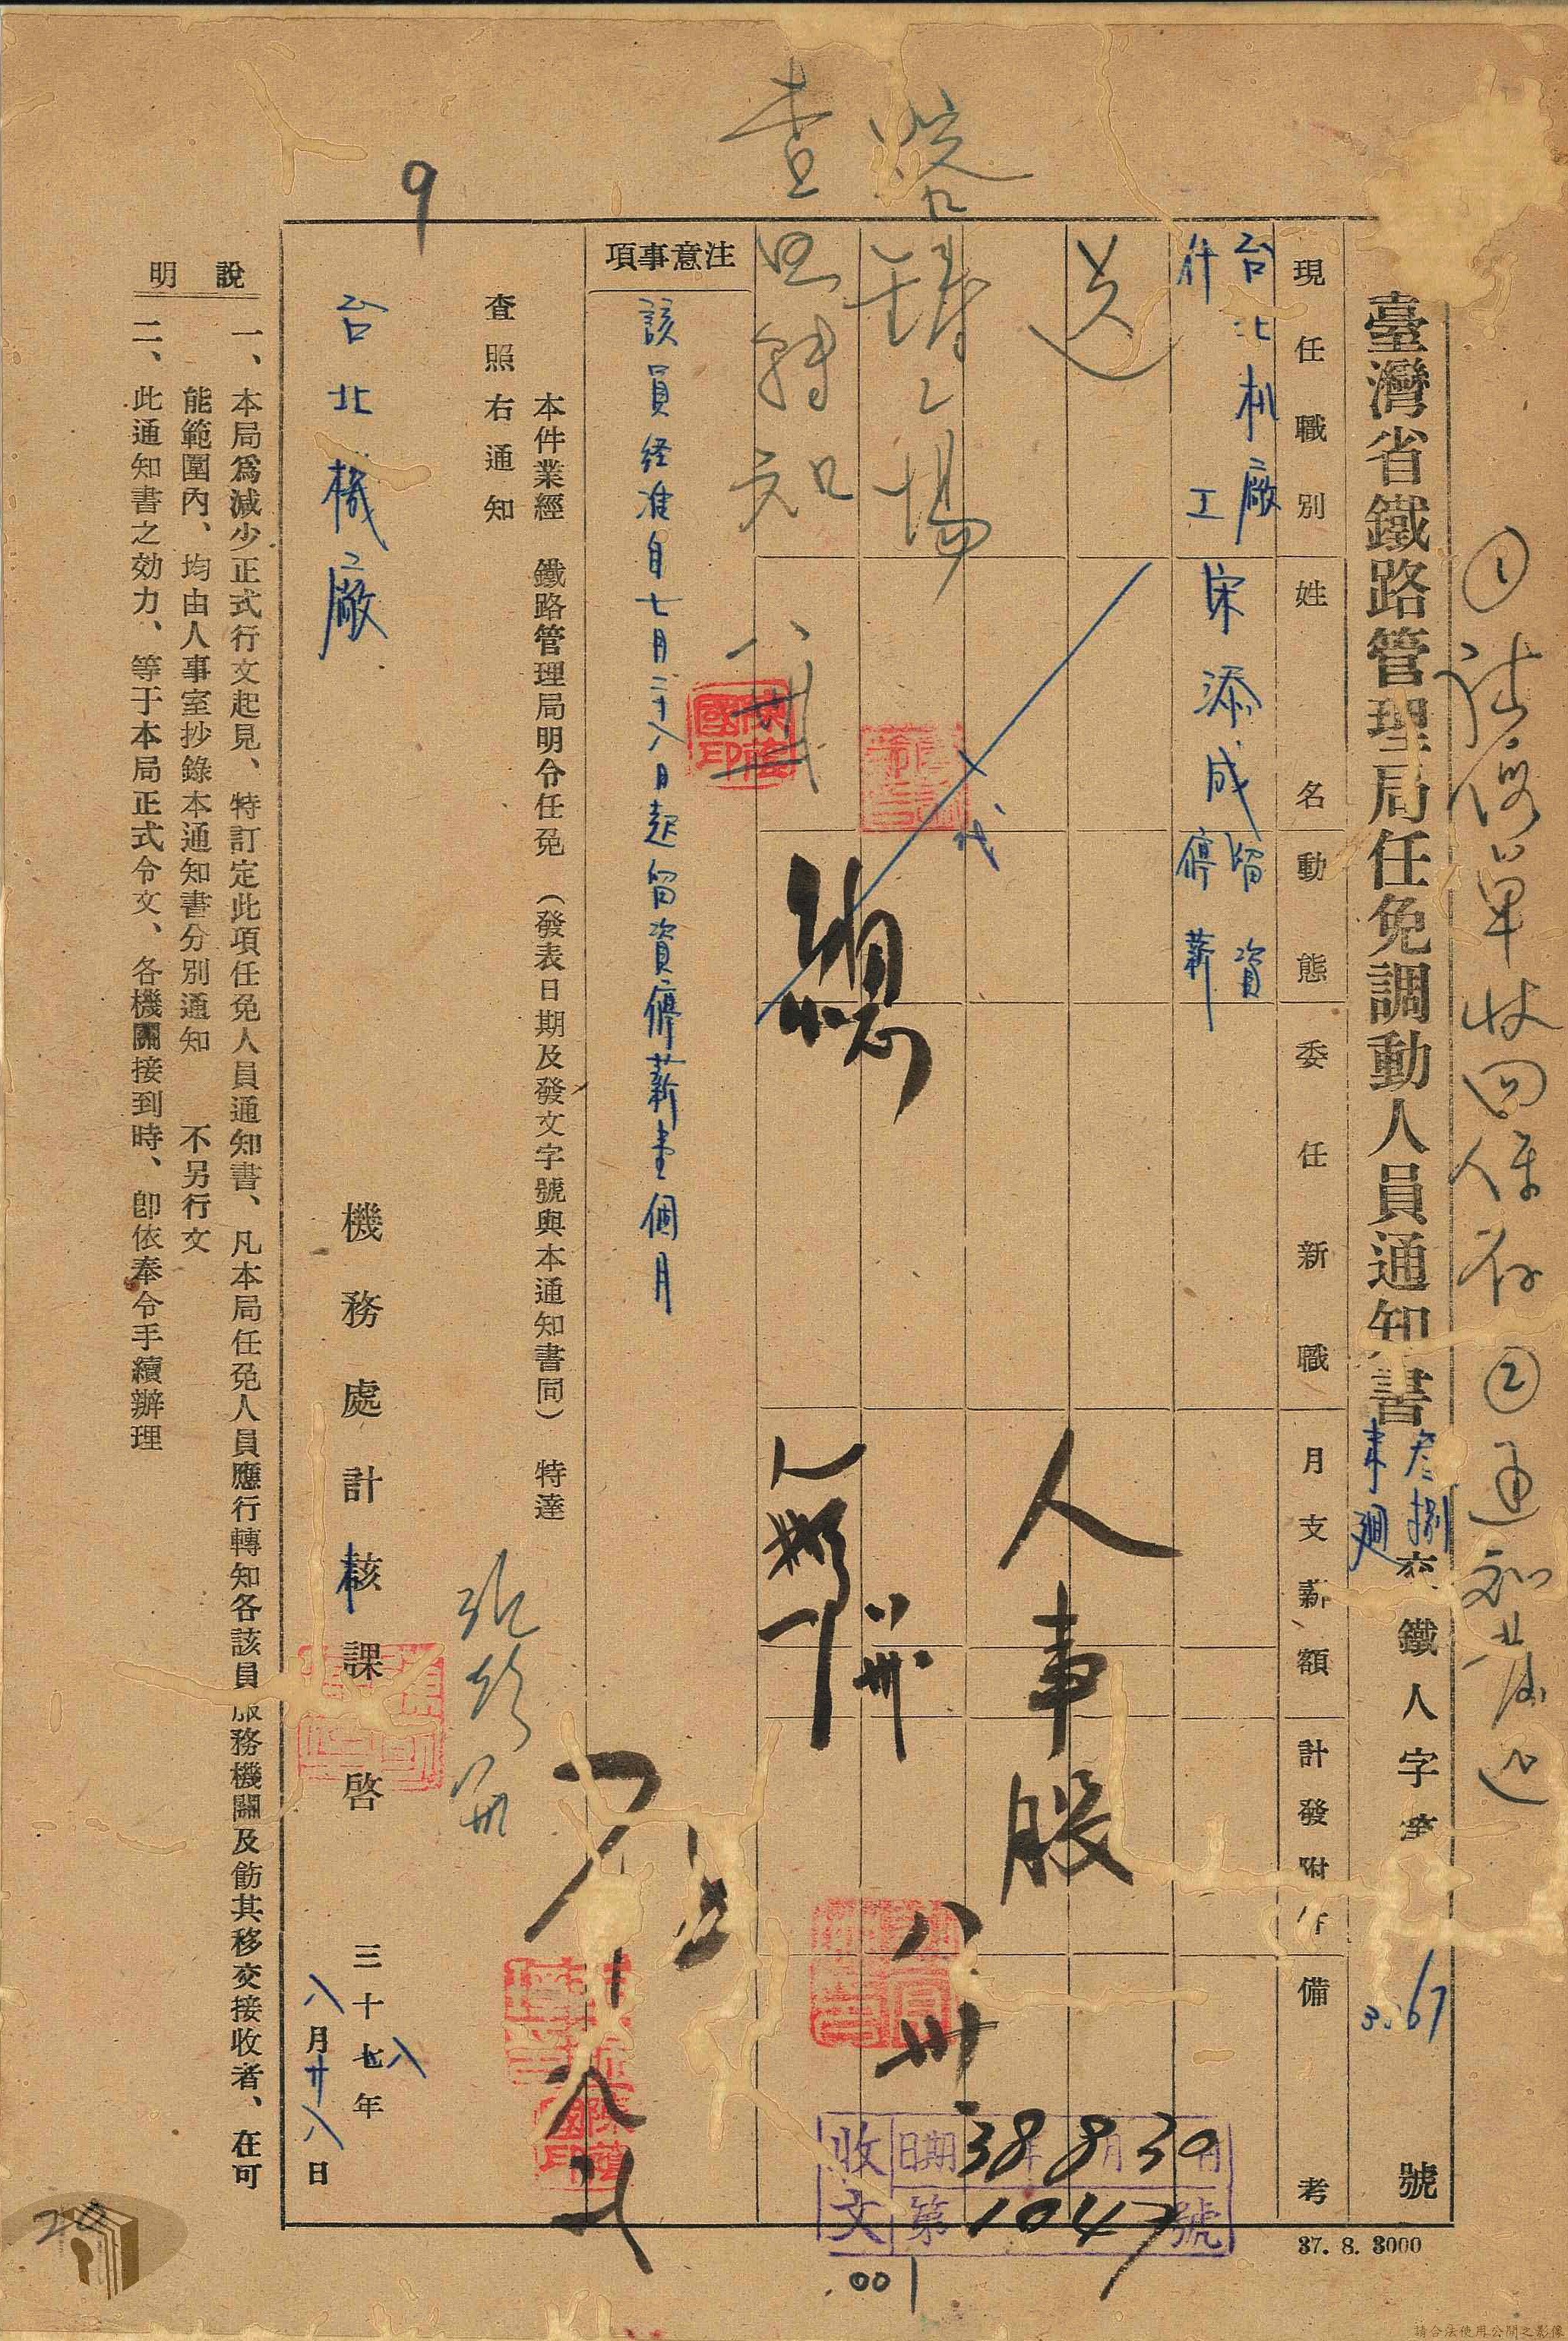 臺灣省鐵路管理局任免調動人員通知書
叁捌
鐵人字第
號
現任職別
姓名
動態
委任新職
月支薪額
計發附件
備考
台北机廠
什工
宋添成
留資
停薪
送
鑄工場
查照轉知
代
總
人事股
八卅
收文
日期38年8月30日
第1047號
001
注意事項
該員経准自七月二十八日起留資停薪壹個月
本件業經 鐵路管理局明令任免(發表日期及發文字號與本通知書同) 特達
查照右通知
台北機廠
機務處計核課啓
三十七年
八
八月廿八日
說明
一、本局爲減少正式行文起見、特訂定此項任免人員通知書、凡本局任免人員應行轉知各該員服務機關及飭其移交接收者、在可
能範圍內、均由人事室抄錄本通知書分別通知 不另行文
二、此通知書之効力、等于本局正式令文、各機關接到時、卽依奉令手續辦理
①
單收回保存
②通知
9
20
37. 8. 3000
請合法使用公開之影像